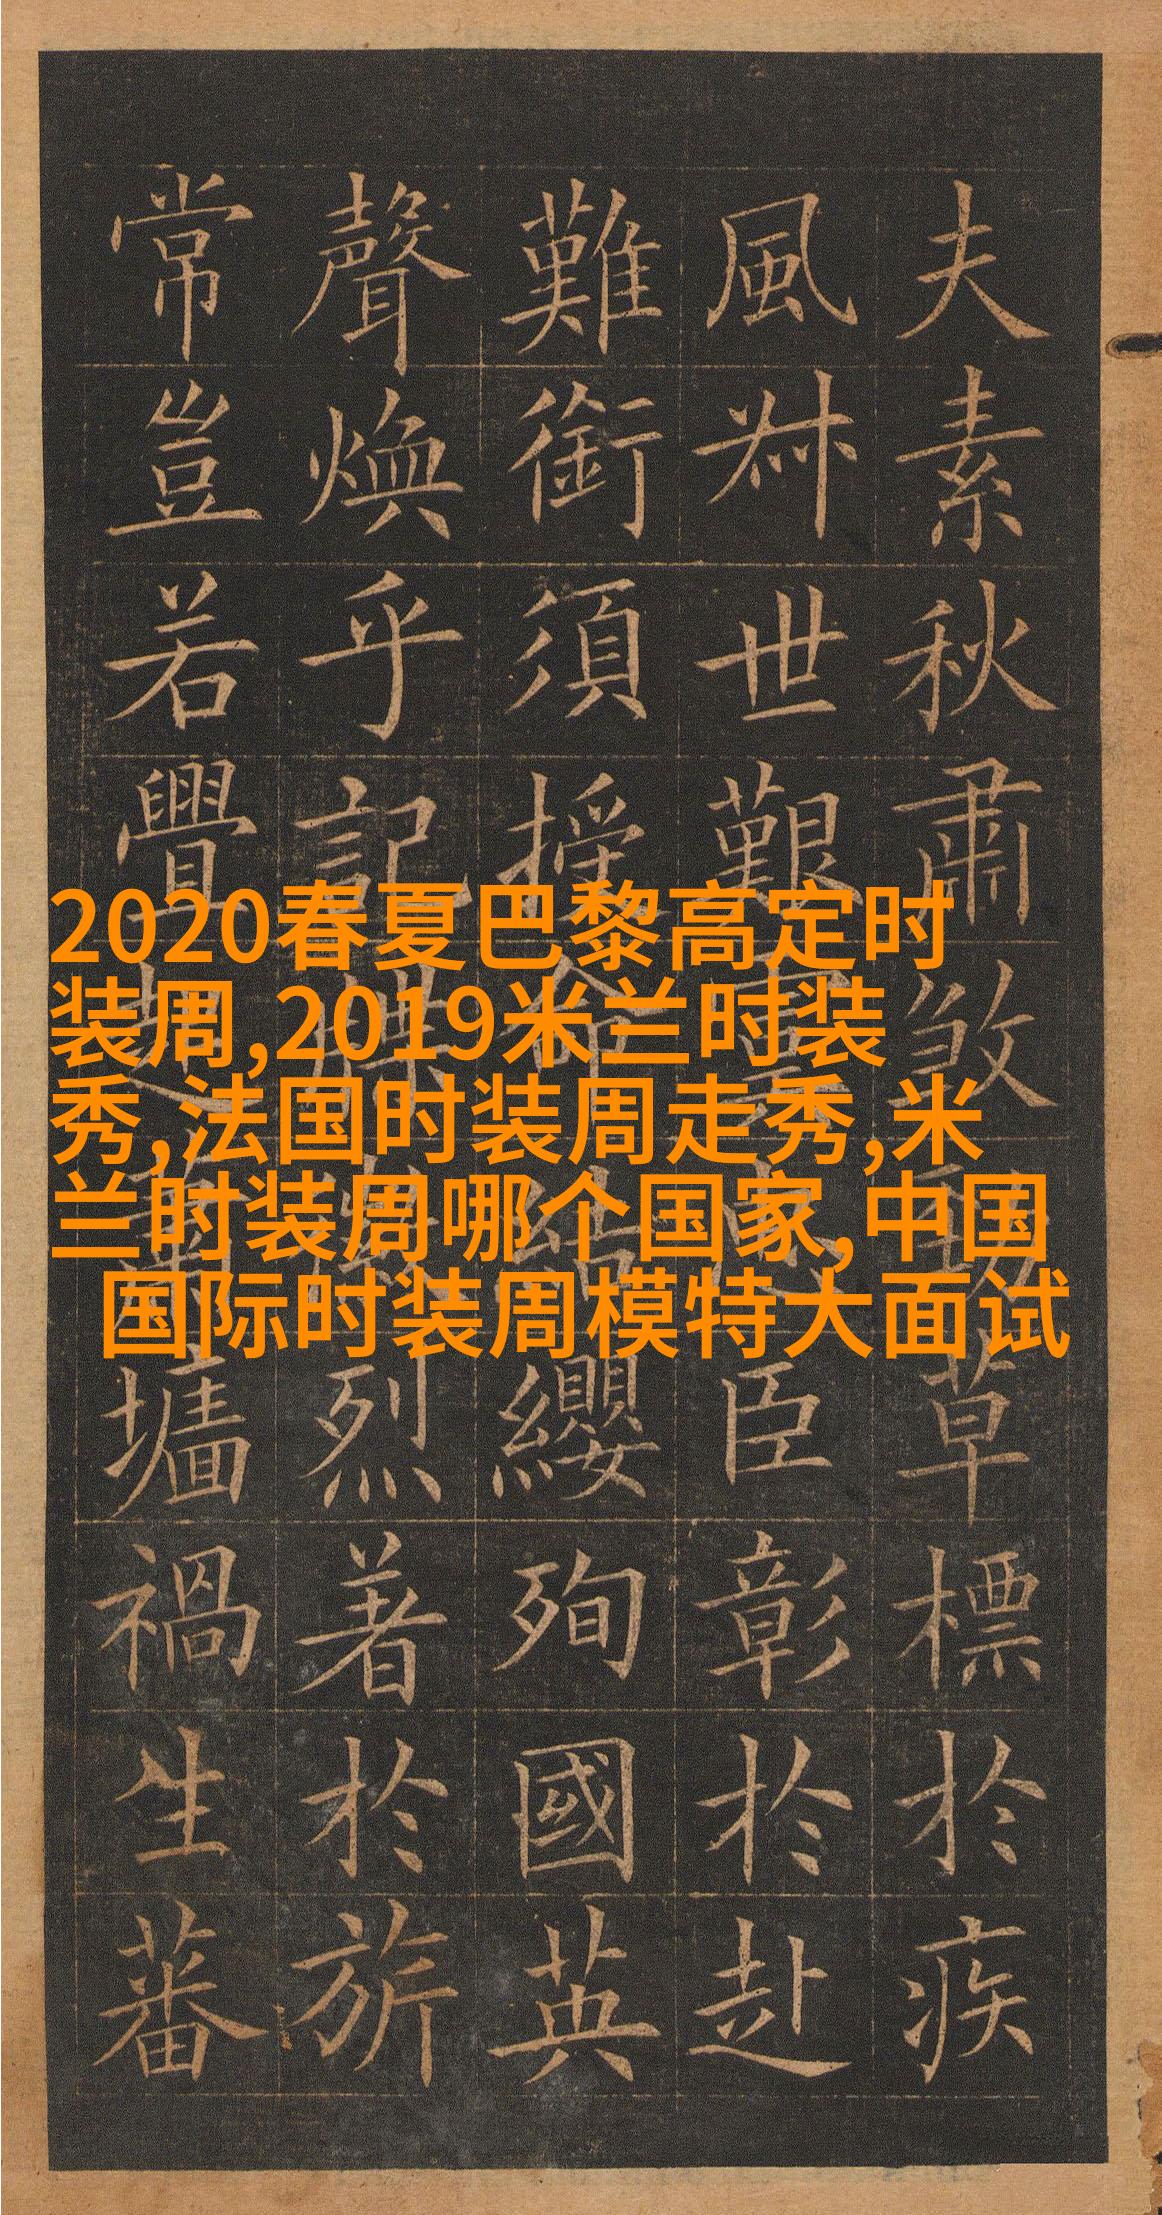 夫素秋肅煞勁草標於疾
風叔世艱虞忠臣彰於赴
難銜須授命結纓殉國英
聲煥乎記牒徽烈著於旂
常豈若舋起蕭墻禍生蕃
2020春夏巴黎高定时
装周,2019米兰时装
秀,法国时装周走秀,米
兰时装周哪个国家,中国
国际时装周模特大面试